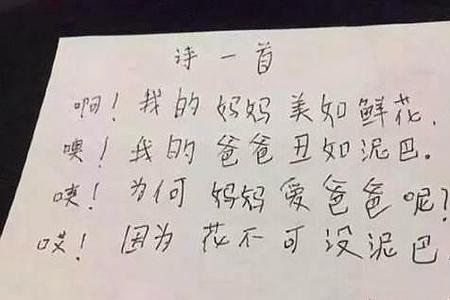 诗一首
啊！我的妈妈美如鲜花，
噢！我的爸爸丑如泥巴。
咦！为何妈妈爱爸爸呢？
哎！因为花不可没泥巴